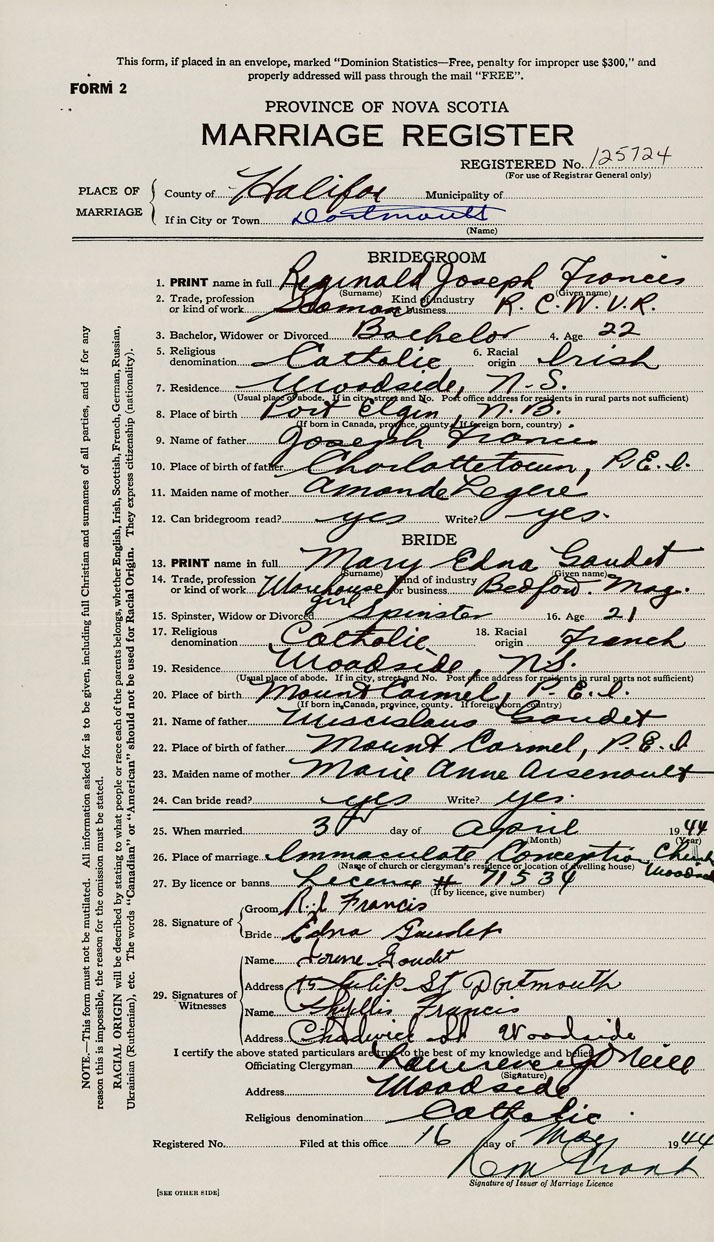 This form, if placed in an envelope, marked "Dominion Statistics—Free, penalty for improper use $300," and
properly addressed will pass through the mail "FREE".
FORM 2
PROVINCE OF NOVA SCOTIA
MARRIAGE REGISTER
REGISTERED No. 125724
(For use of Registrar General only)
PLACE OF MARRIAGE
County of Halifax Municipality of
If in City or Town Dartmouth
(Name)
BRIDEGROOM
1. PRINT name in full Reginald Joseph Francis
(Surname) (Given name)
2. Trade, profession or kind of work Seaman Kind of industry or business R. C. N. V. R.
3. Bachelor, Widower or Divorced Bachelor 4. Age 22
5. Religious denomination Catholic 6. Racial origin Irish
7. Residence Woodside, N.S.
(Usual place of abode. If in city, street and No. Post office address for residents in rural parts not sufficient)
8. Place of birth Port Elgin, N.B.
(If born in Canada, province, county. If foreign born, country)
9. Name of father Joseph Francis
10. Place of birth of father Charlottetown, P.E.I.
11. Maiden name of mother Amanda Legere
12. Can bridegroom read? yes Write? yes.
BRIDE
13. PRINT name in full Mary Edna Gaudet
(Surname) (Given name)
14. Trade, profession or kind of work Warehouse girl Kind of industry or business Bedford Mag.
15. Spinster, Widow or Divorced Spinster 16. Age 21
17. Religious denomination Catholic 18. Racial origin French
19. Residence Woodside, N.S.
(Usual place of abode. If in city, street and No. Post office address for residents in rural parts not sufficient)
20. Place of birth Mount Carmel, P.E.I.
(If born in Canada, province, county. If foreign born, country)
21. Name of father Miscislaus Gaudet
22. Place of birth of father Mount Carmel, P.E.I
23. Maiden name of mother Marie Anne Arsenault
24. Can bride read? yes Write? yes.
25. When married 3rd day of April 1944
(Month) (Year)
26. Place of marriage Immaculate Conception Church Woodside
(Name of church or clergyman's residence or location of dwelling house)
27. By licence or banns License # 71534
(If by licence, give number)
28. Signature of
Groom R.J. Francis
Bride Edna Gaudet
29. Signatures of Witnesses
Name Gaudet
Address 15 Tulip St Dartmouth
Name Phyllis Francis
Address Chadwick St Woodside
I certify the above stated particulars are true to the best of my knowledge and belief.
Officiating Clergyman Laurence J O'Neill
(Signature)
Address Woodside
Religious denomination Catholic
Registered No. Filed at this office 16 day of May 1944
Signature of Issuer of Marriage Licence
[SEE OTHER SIDE]
NOTE.—This form must not be mutilated. All information asked for is to be given, including full Christian and surnames of all parties, and if for any
reason this is impossible, the reason for the omission must be stated.
RACIAL ORIGIN will be described by stating to what people or race each of the parents belongs, whether English, Irish, Scottish, French, German, Russian,
Ukrainian (Ruthenian), etc. The words "Canadian" or "American" should not be used for Racial Origin. They express citizenship (nationality).